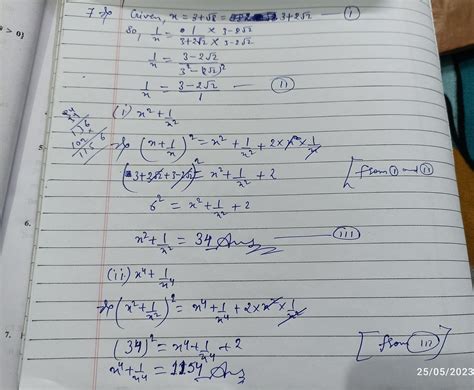 > 0}
7. Given, x = 3+√8 = 3+2√2 — (i)
So, 1/x = 1/(3+2√2) × (3-2√2)/(3-2√2)
1/x = (3-2√2)/(3²-(2√2)²)
1/x = (3-2√2)/1 — (ii)
(i) x² + 1/x²
(x + 1/x)² = x² + 1/x² + 2 × x × 1/x
(3+2√2+3-2√2)² = x² + 1/x² + 2 [from (i) and (ii)
6² = x² + 1/x² + 2
6.
x² + 1/x² = 34 Ans — (iii)
(ii) x⁴ + 1/x⁴
(x² + 1/x²)² = x⁴ + 1/x⁴ + 2 × x² × 1/x²
7.
(34)² = x⁴ + 1/x⁴ + 2 [from (iii)]
x⁴ + 1/x⁴ = 1154 Ans
25/05/2023